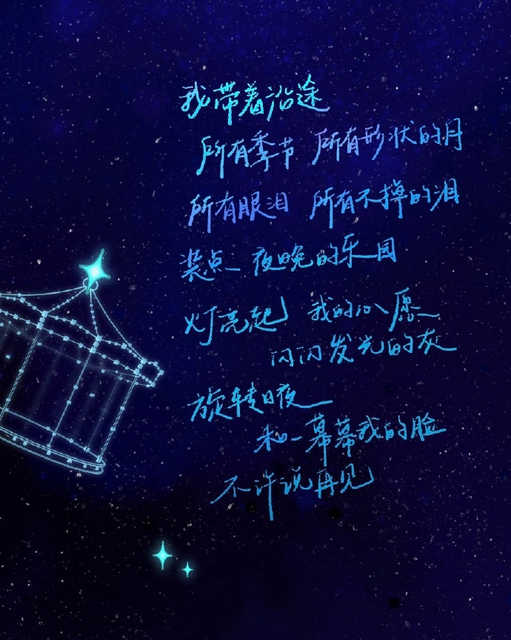 我带着沿途
所有季节 所有形状的月
所有眼泪 所有不掉的泪
装点 夜晚的乐园
灯亮起 我的心愿
闪闪发光的灰
旋转日夜
和一幕幕我的脸
不许说再见